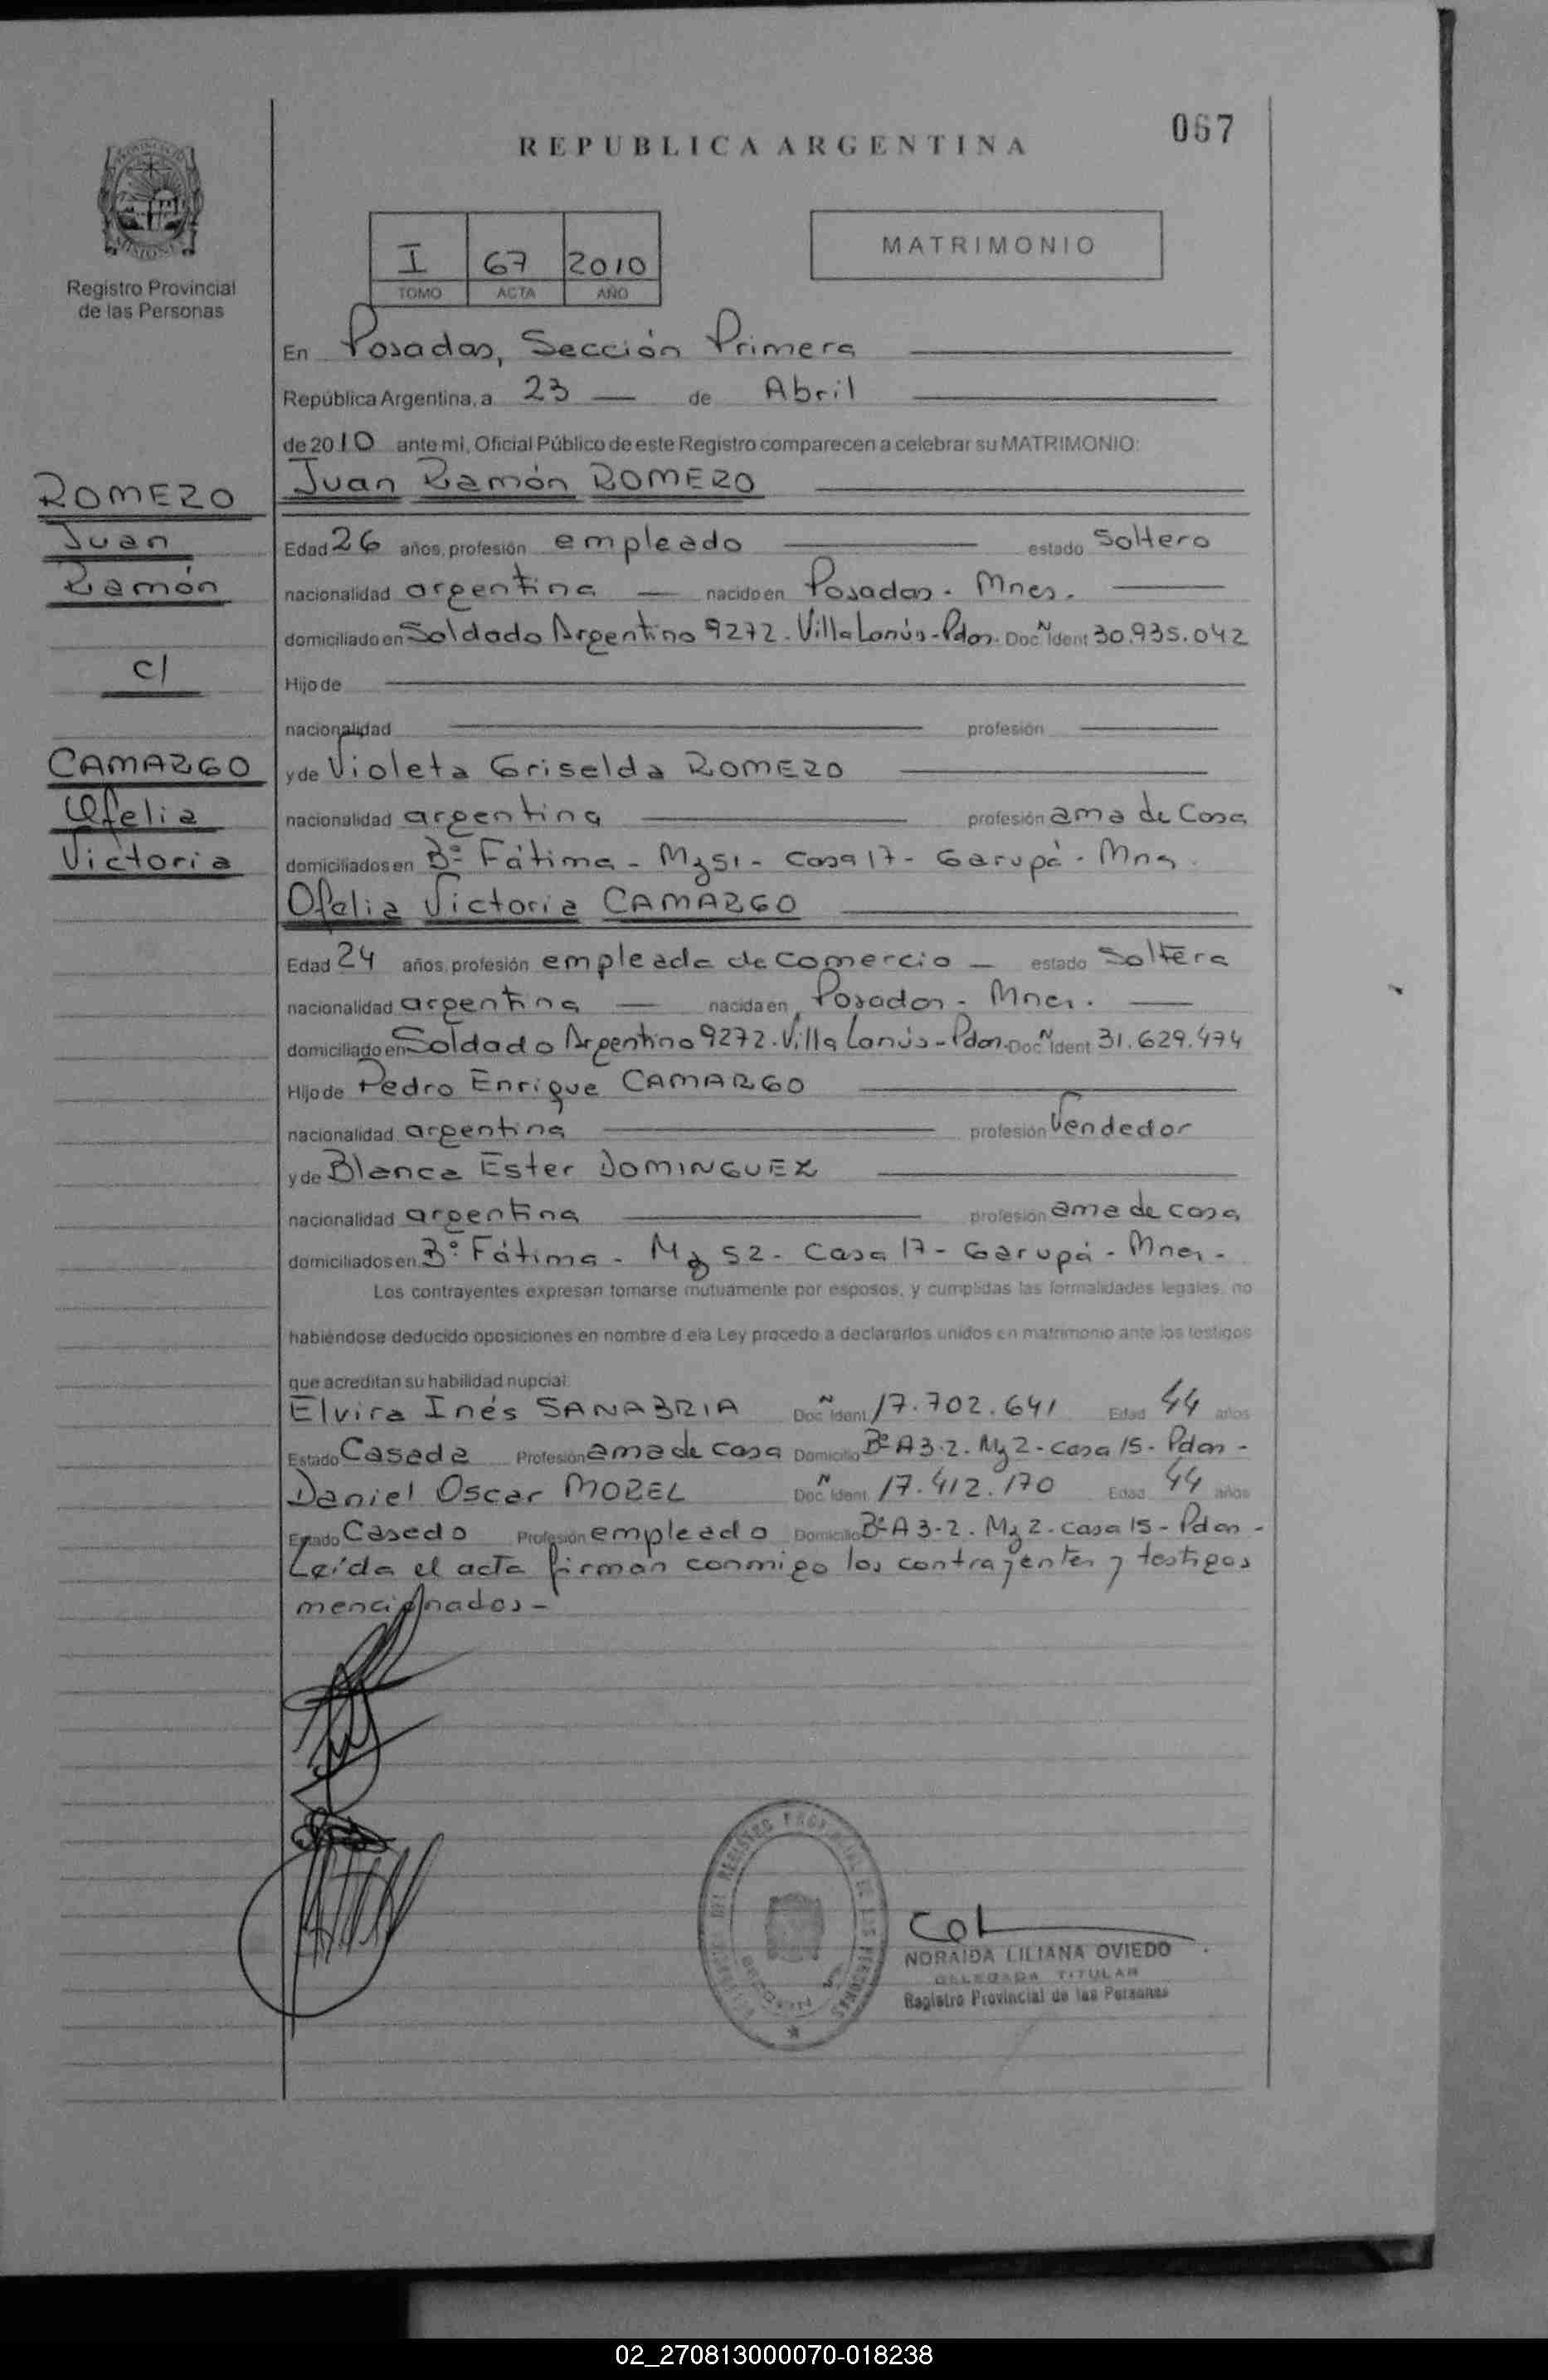 067
REPUBLICA ARGENTINA
MATRIMONIO
I 67 2010
TOMO ACTA AÑO
Registro Provincial
de las Personas
En Posadas, Sección Primera
República Argentina, a 23 — de Abril
de 2010 ante mi, Oficial Público de este Registro comparecen a celebrar su MATRIMONIO:
ROMERO
Juan
Ramón
c/
CAMARGO
Ofelia
Victoria
Juan Ramón ROMERO
Edad 26 años, profesión empleado estado Soltero
nacionalidad argentina — nacido en Posadas. Mnes.
domiciliado en Soldado Argentino 9272. Villa Lanús - Pdas. Doc. Ñ Ident 30.935.042
Hijo de
nacionalidad profesión
y de Violeta Griselda ROMERO
nacionalidad argentina profesión ama de Casa
domiciliados en Bº Fátima - Mz 51 - Casa 17 - Garupá - Mnes.
Ofelia Victoria CAMARGO
Edad 24 años, profesión empleada de comercio — estado Soltera
nacionalidad argentina — nacida en Posadas - Mnes.
domiciliado en Soldado Argentino 9272. Villa Lanús - Pdas. Doc. Ñ Ident 31.629.474
Hijo de Pedro Enrique CAMARGO
nacionalidad argentina profesión Vendedor
y de Blanca Ester DOMINGUEZ
nacionalidad argentina profesión ama de casa
domiciliados en Bº Fátima - Mz 52 - Casa 17 - Garupá - Mnes.
Los contrayentes expresan tomarse mutuamente por esposos, y cumplidas las formalidades legales, no
habiéndose deducido oposiciones en nombre d ela Ley procedo a declararlos unidos en matrimonio ante los testigos
que acreditan su habilidad nupcial:
Elvira Inés SANABRIA Doc. Ñ Ident. 17.702.641 Edad 44 años
Estado Casada Profesión ama de casa Domicilio Bº A 3-2. Mz 2 - casa 15 - Pdas -
Daniel Oscar MOREL Doc. Ñ Ident. 17.412.170 Edad 44 años
Estado Casado Profesión empleado Domicilio Bº A 3-2. Mz 2. casa 15 - Pdas -
Leída el acta firman conmigo los contrayentes y testigos
mencionados -
NORAIDA LILIANA OVIEDO
DELEGADA TITULAR
Registro Provincial de las Personas
02_270813000070-018238